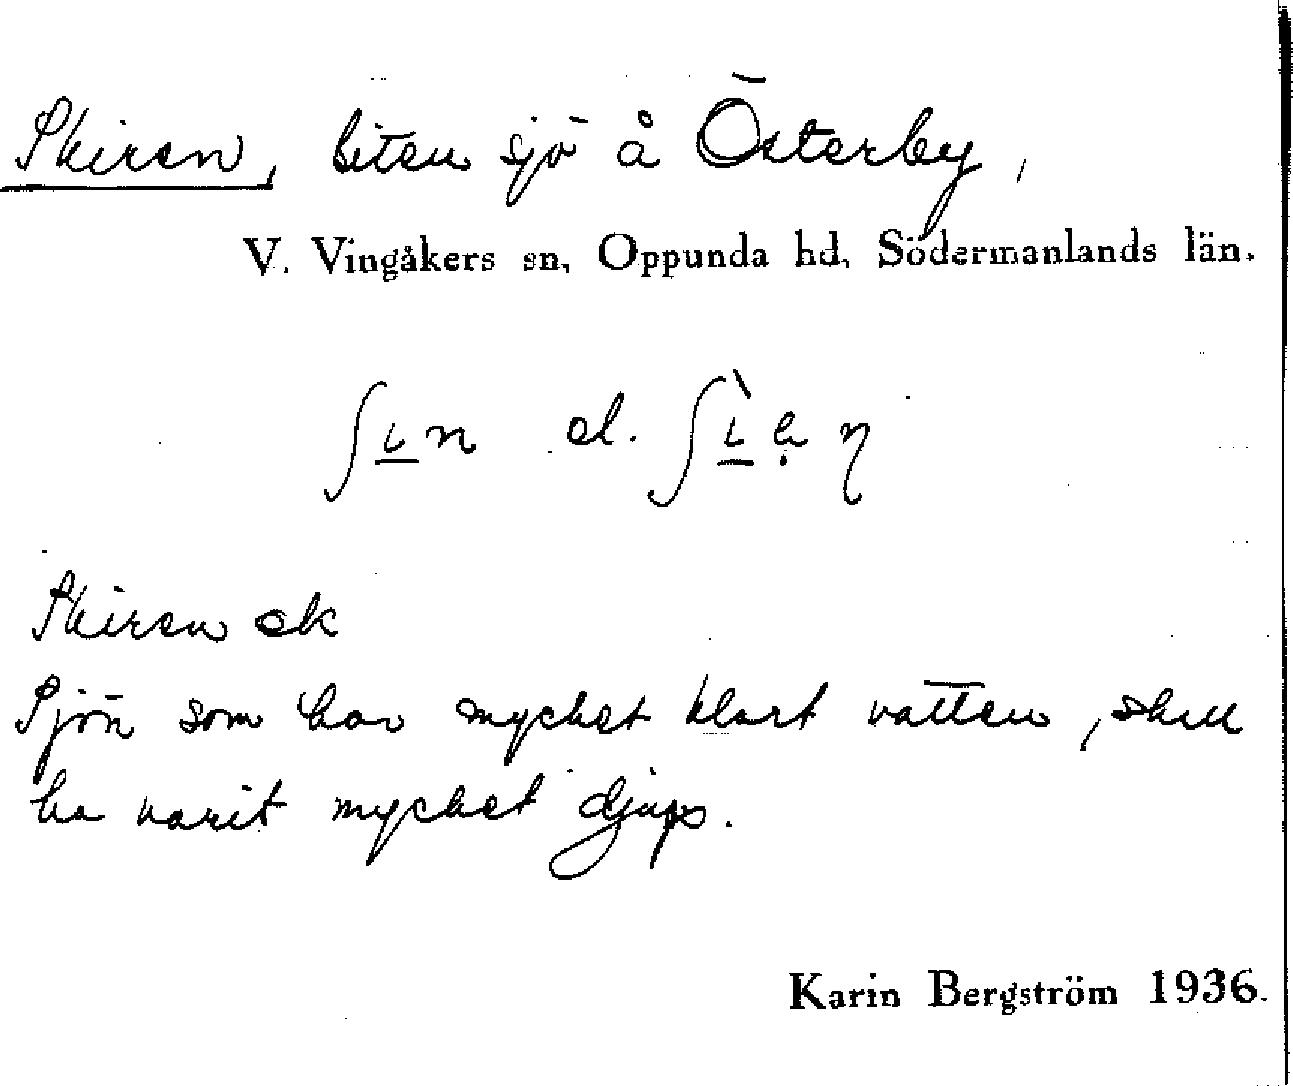 Skiren, liten sjö å Österby,
V. Vingåkers sn, Oppunda hd, Södermanlands län.
el.
Skiren ek
Sjön som har mycket klart vatten, skall
ha varit mycket djup.
Karin Bergström 1936.